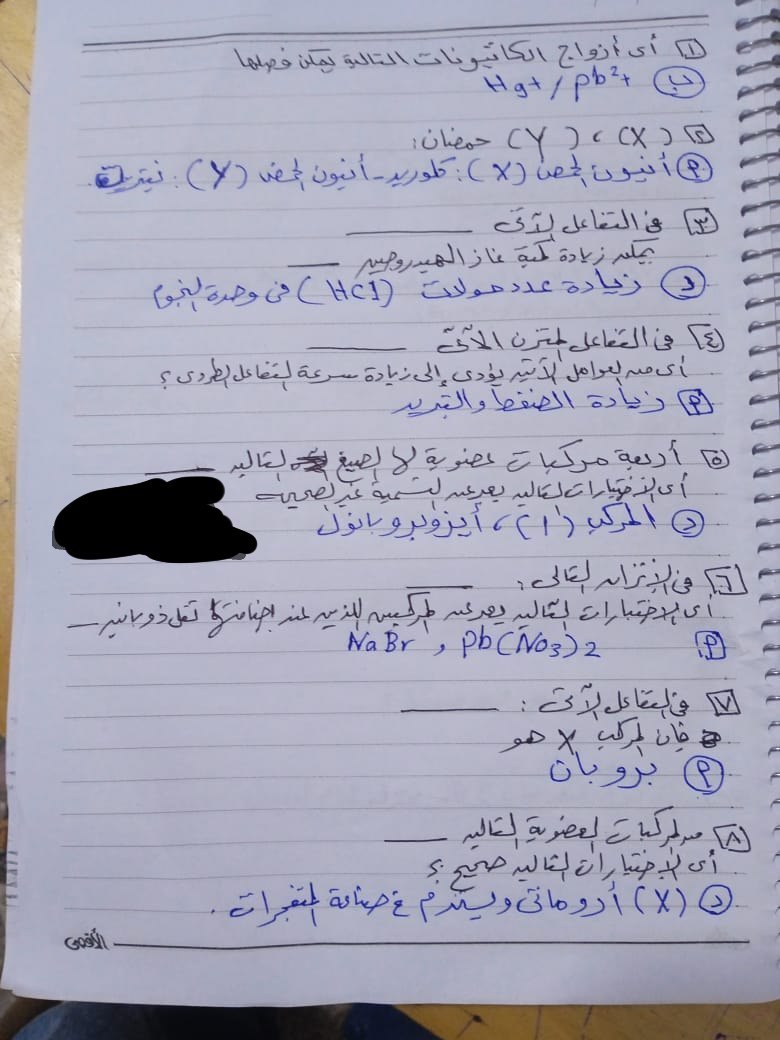 ١ أى أزواج الكاتيونات التالية يمكن فصلها
ب Hg+ / Pb2+
٢ (X) ، (Y) حمضان:
أ أنيون الحمض (X): كلوريد - أنيون الحمض (Y): نيتريت.
٣ فى التفاعل الآتى ـــــ
يمكن زيادة كمية غاز الهيدروجين ـــــ
د زيادة عدد مولات (HCl) فى وحدة الحجوم
٤ فى التفاعل المتزن الآتى ـــــ
أى من العوامل الآتية يؤدى إلى زيادة سرعة التفاعل الطردى؟
أ زيادة الضغط والتبريد
٥ أربعة مركبات عضوية لها الصيغ التالية ـــــ
أى الاختيارات التالية يعبر عن التسمية غير الصحيحة
د المركب (٢)، أيزوبروبانول
٦ فى الإتزان التالى: ـــــ
أى الاختيارات التالية يعبر عن المركبين اللذين عند إضافتهما تقل ذوبانية ـــــ
أ NaBr و Pb(NO3)2
٧ فى التفاعل الآتى: ـــــ
فإن المركب X هو
أ بروبان
٨ من المركبات العضوية التالية ـــــ
أى الاختيارات التالية صحيح؟
د (X) أروماتى ويستخدم فى صناعة المتفجرات.